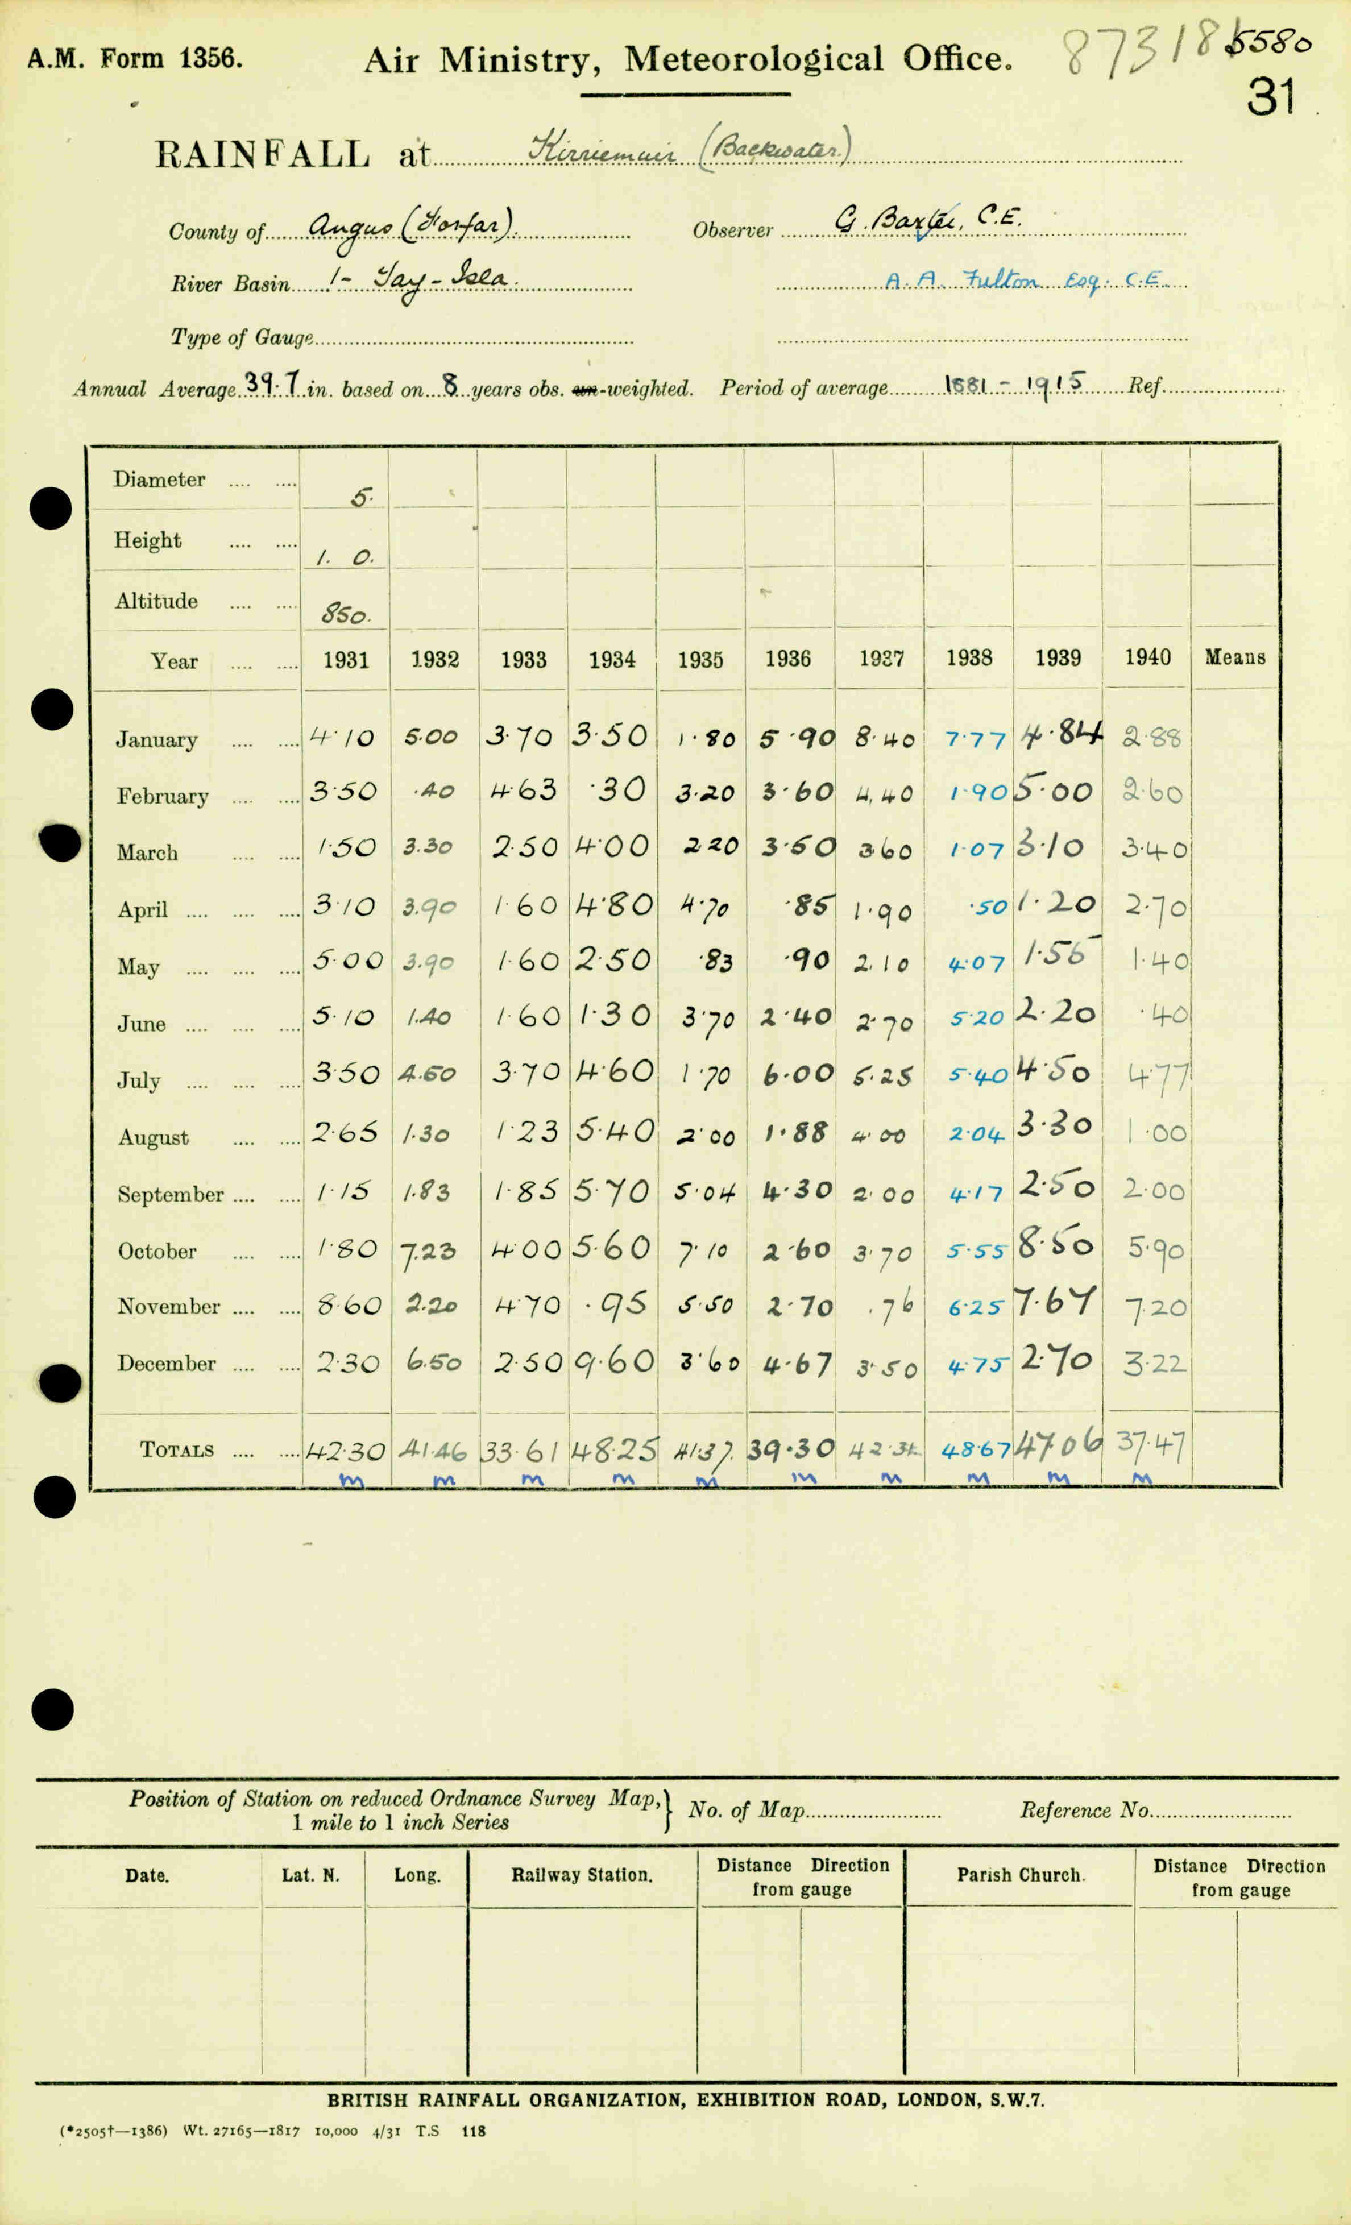 A.M. Form 1356.
Air Ministry, Meteorological Office.
873181
5580
31
RAINFALL at Kirriemuir (Backwater)
County of Angus (Forfar). Observer G. Baxter, C.E.
River Basin 1- Tay - Isla. A. A. Fulton Esq. C.E.
Type of Gauge
Annual Average 39.7 in. based on 8 years obs. un-weighted. Period of average 1881 - 1915 Ref.
Diameter 5.
Height 1. 0.
Altitude 850.
Year 1931 1932 1933 1934 1935 1936 1937 1938 1939 1940 Means
January 4.10 5.00 3.70 3.50 1.80 5.90 8.40 7.77 4.84 2.88
February 3.50 .40 4.63 .30 3.20 3.60 4.40 1.90 5.00 2.60
March 1.50 3.30 2.50 4.00 2.20 3.50 3.60 1.07 3.10 3.40
April 3.10 3.90 1.60 4.80 4.70 .85 1.90 .50 1.20 2.70
May 5.00 3.90 1.60 2.50 .83 .90 2.10 4.07 1.55 1.40
June 5.10 1.40 1.60 1.30 3.70 2.40 2.70 5.20 2.20 .40
July 3.50 4.50 3.70 4.60 1.70 6.00 5.25 5.40 4.50 4.77
August 2.65 1.30 1.23 5.40 2.00 1.88 4.00 2.04 3.30 1.00
September 1.15 1.83 1.85 5.70 5.04 4.30 2.00 4.17 2.50 2.00
October 1.80 7.23 4.00 5.60 7.10 2.60 3.70 5.55 8.50 5.90
November 8.60 2.20 4.70 .95 5.50 2.70 .76 6.25 7.67 7.20
December 2.30 6.50 2.50 9.60 3.60 4.67 3.50 4.75 2.70 3.22
TOTALS 42.30 41.46 33.61 48.25 41.37 39.30 42.31 48.67 47.06 37.47
m m m m m m m m m m
Position of Station on reduced Ordnance Survey Map, } No. of Map Reference No.
1 mile to 1 inch Series
Date. Lat. N. Long. Railway Station. Distance Direction from gauge Parish Church. Distance Direction from gauge
BRITISH RAINFALL ORGANIZATION, EXHIBITION ROAD, LONDON, S.W.7.
(*2505†—1386) Wt. 27165—1817 10,000 4/31 T.S 118